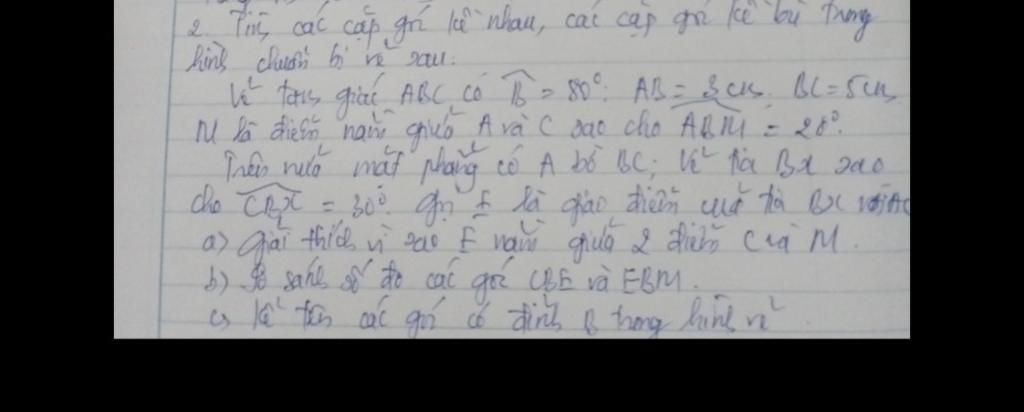 2. Tìm các cặp góc kề nhau, các cặp góc kề bù trong
hình chuẩn bị vẽ sau.
Vẽ tam giác ABC có B̂ = 80°. AB = 3 cm. BC = 5 cm
M là điểm nằm giữa A và C sao cho ABM = 20°.
Trên nửa mặt phẳng có A bờ BC, vẽ tia Bx sao
cho CBx = 30°. Gọi E là giao điểm của tia Bx với AC
a) Giải thích vì sao E nằm giữa 2 điểm C và M.
b) So sánh số đo các góc CBE và EBM.
c) Kể tên các góc có đỉnh B trong hình vẽ